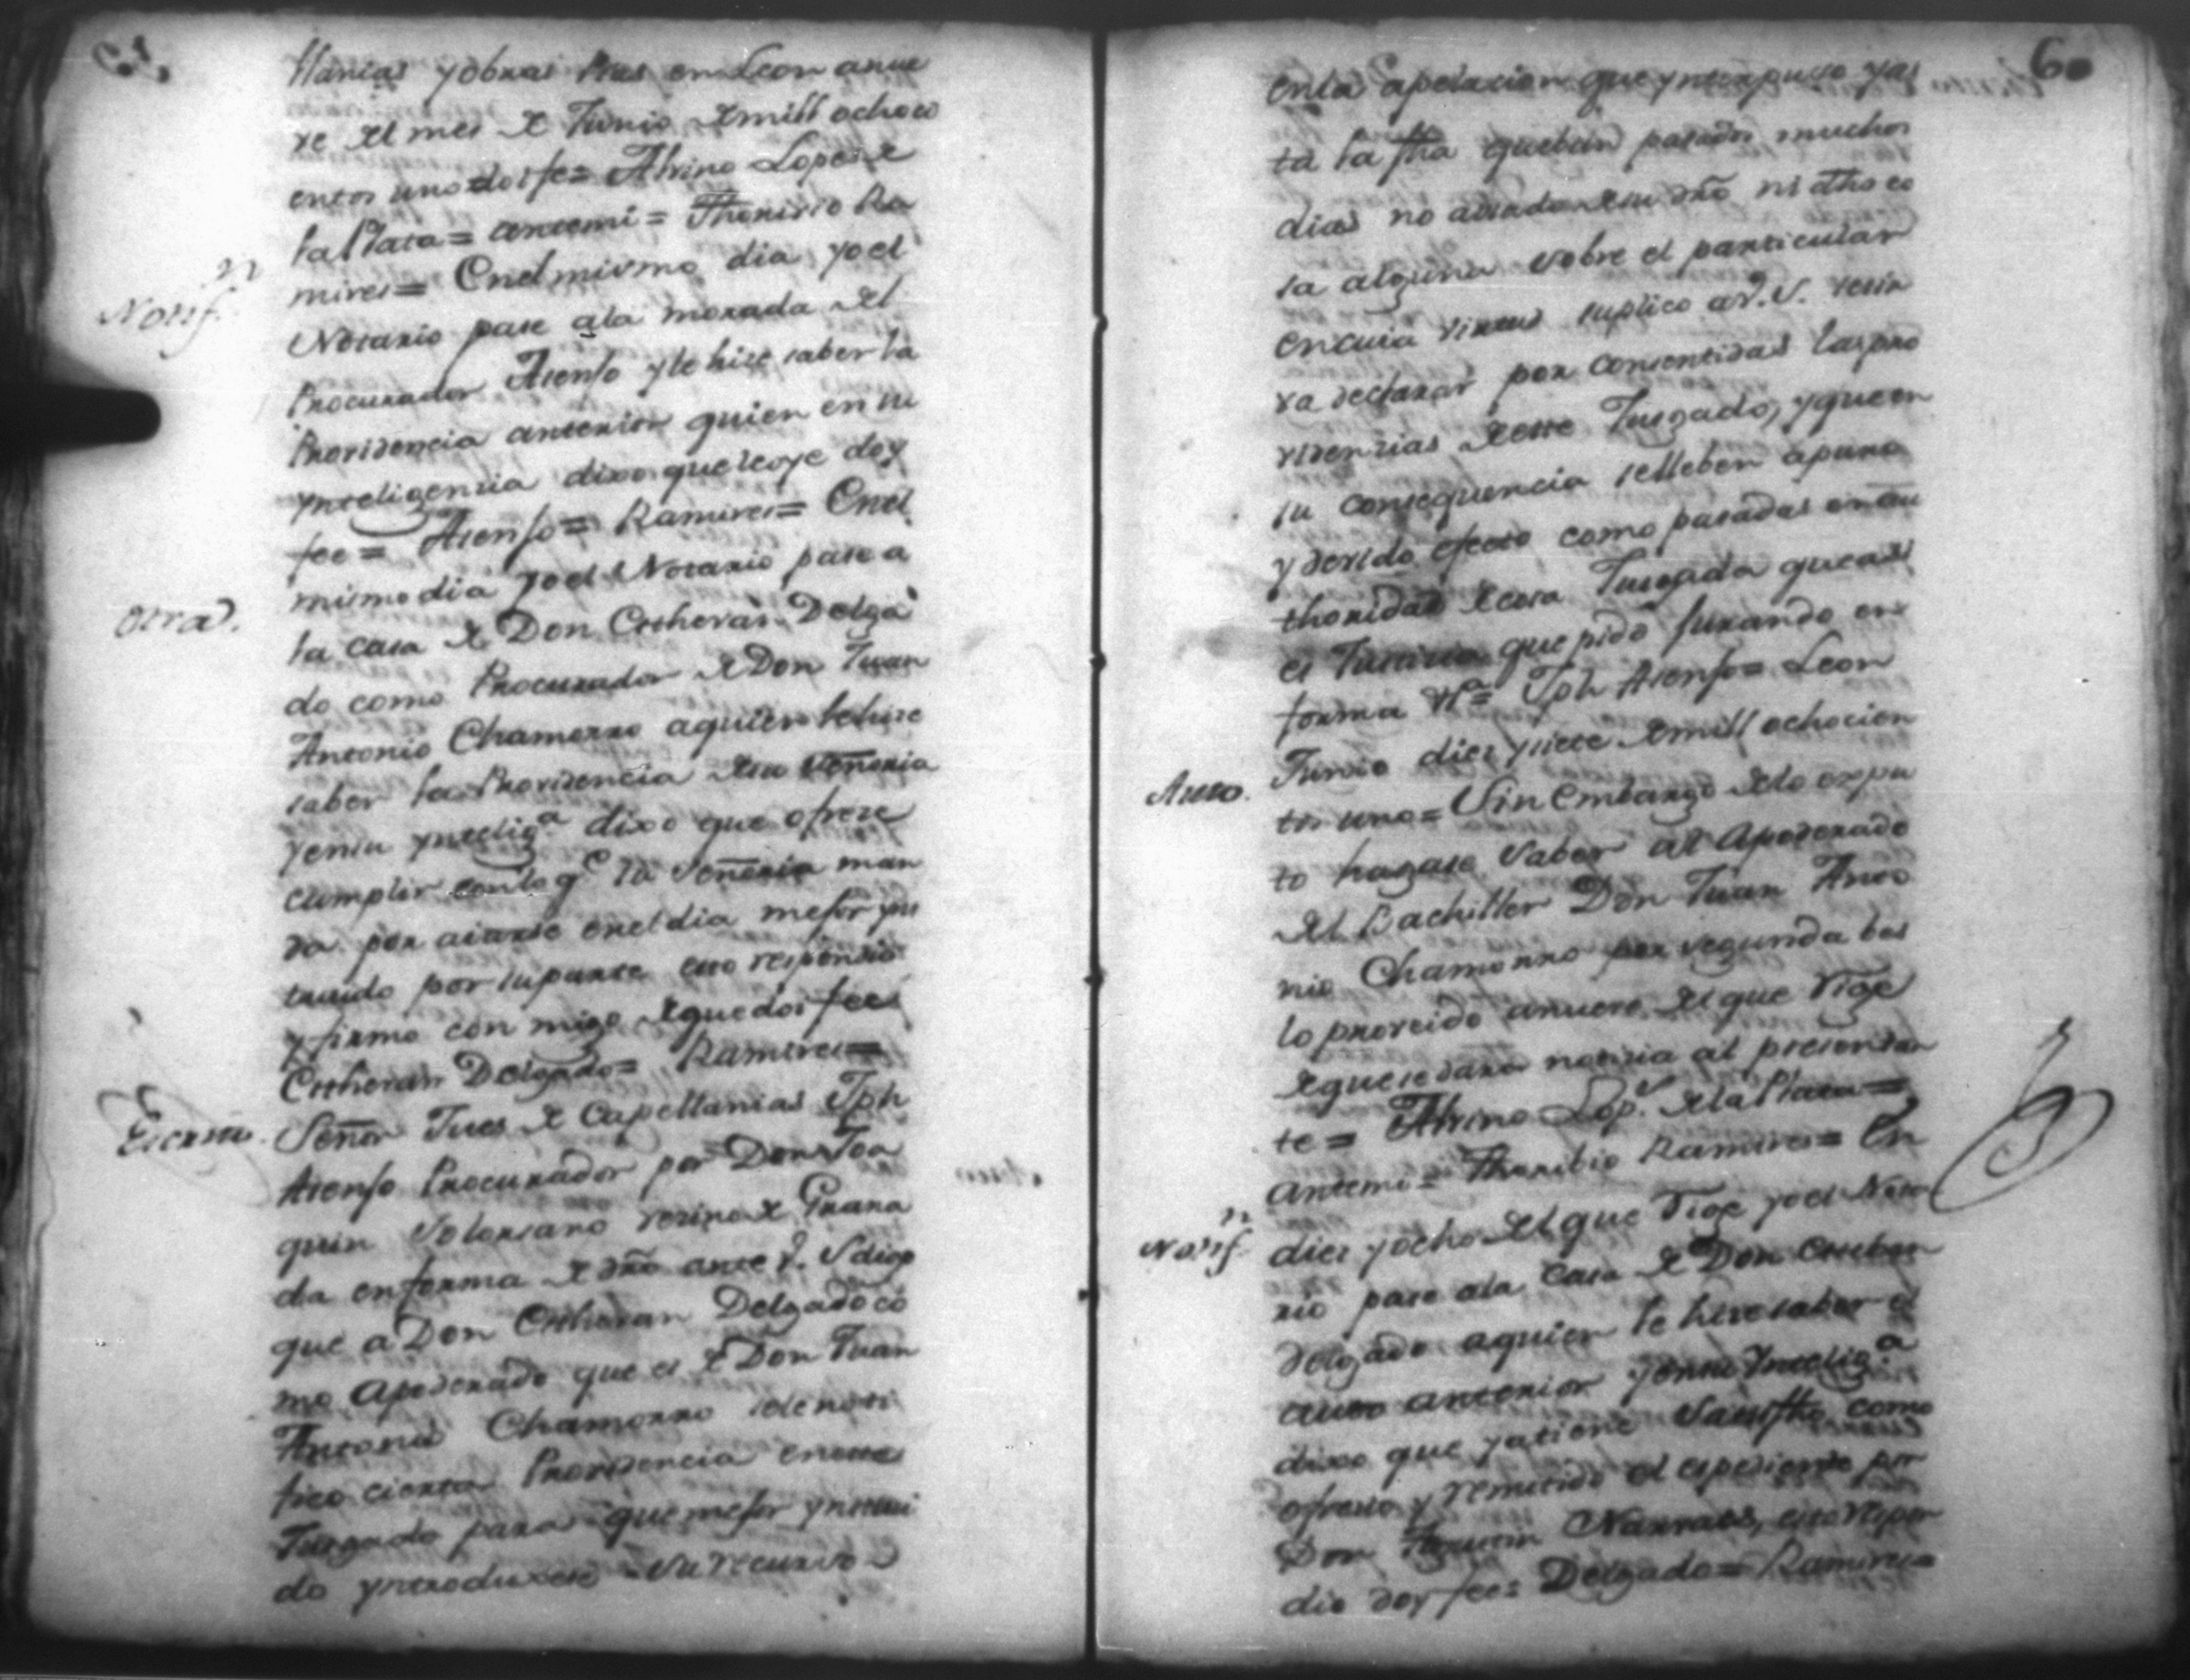 llanias y obras Pias en Leon a nue
ve del mes de Junio de mill ochoci
entos uno doi fe= Albino Lopes de
la Plata= ante mi= Thorivio Ra
mires= En el mismo dia, yo el
Notif.n
Notario pase a la morada del
Procurador Asenso y le hise saber la
Providencia anterior quien en su
ynteligencia dixo que lo oye doy
fee= Asenso= Ramires= En el
Otra.
mismo dia yo el Notario pase a
la casa de Don Esthevan Delga
do como Procurador de Don Juan
Antonio Chamorro a quien le hise
saber la Providencia de su Señoria
y en su ynteliga dixo que ofrese
cumplir con lo qe su Señoria man
da por aiarse en el dia mejor yns
truido por su parte esto respondio
y firmo con migo de que doi fee=
Esthevan Delgado= Ramires=
Escrito.
Señor Jues de Capellanias Jph
Asenso Procurador por Don Joa
quin Solorsano vesino de Grana
da en forma de dro ante V. S digo
que a Don Esthevan Delgado co
mo Apoderado que es de Don Juan
Antonio Chamorro se le noti
fico cierta Providencia en este
Jusgado para que mejor ynstrui
do yntroduxese su recurso
60
en la apelacion que ynterpuso y as
ta la fha que han pasado muchos
dias no a usado de su dro ni dho co
sa alguna sobre el particular
en cuia virtud suplico a V. S. se sir
va declarar por consentidas las pro
videncias de este Jusgado, y que en
su consequencia se lleben a puro
y devido efecto como pasadas en au
thoridad de cosa Jusgada que asi
es Justicia que pido jurando en
forma Vª= Jph Asenso= Leon
Auto.
Junio dies y siete de mill ochocien
tos uno= Sin embargo de lo expues
to hagase saber al Apoderado
del Bachiller Don Juan Anto
nio Chamorro por segunda bes
lo proveido a nueve del que rige
de que se dara noticia al presentan
te= Albino Lop.s de la Plata=
Ante mi= Thoribio Ramires= En
Notif.n
dies y ocho del que rige yo el Nota
rio pase a la casa de Don Esteban
Delgado a quien le hise saber el
auto anterior y en su Yntelig.a
dixo que ya tiene Satisfho como
ofresio y remitido el espediente por
Don Agustin Narvaes, esto respon
dio doy fee= Delgado= Ramires=